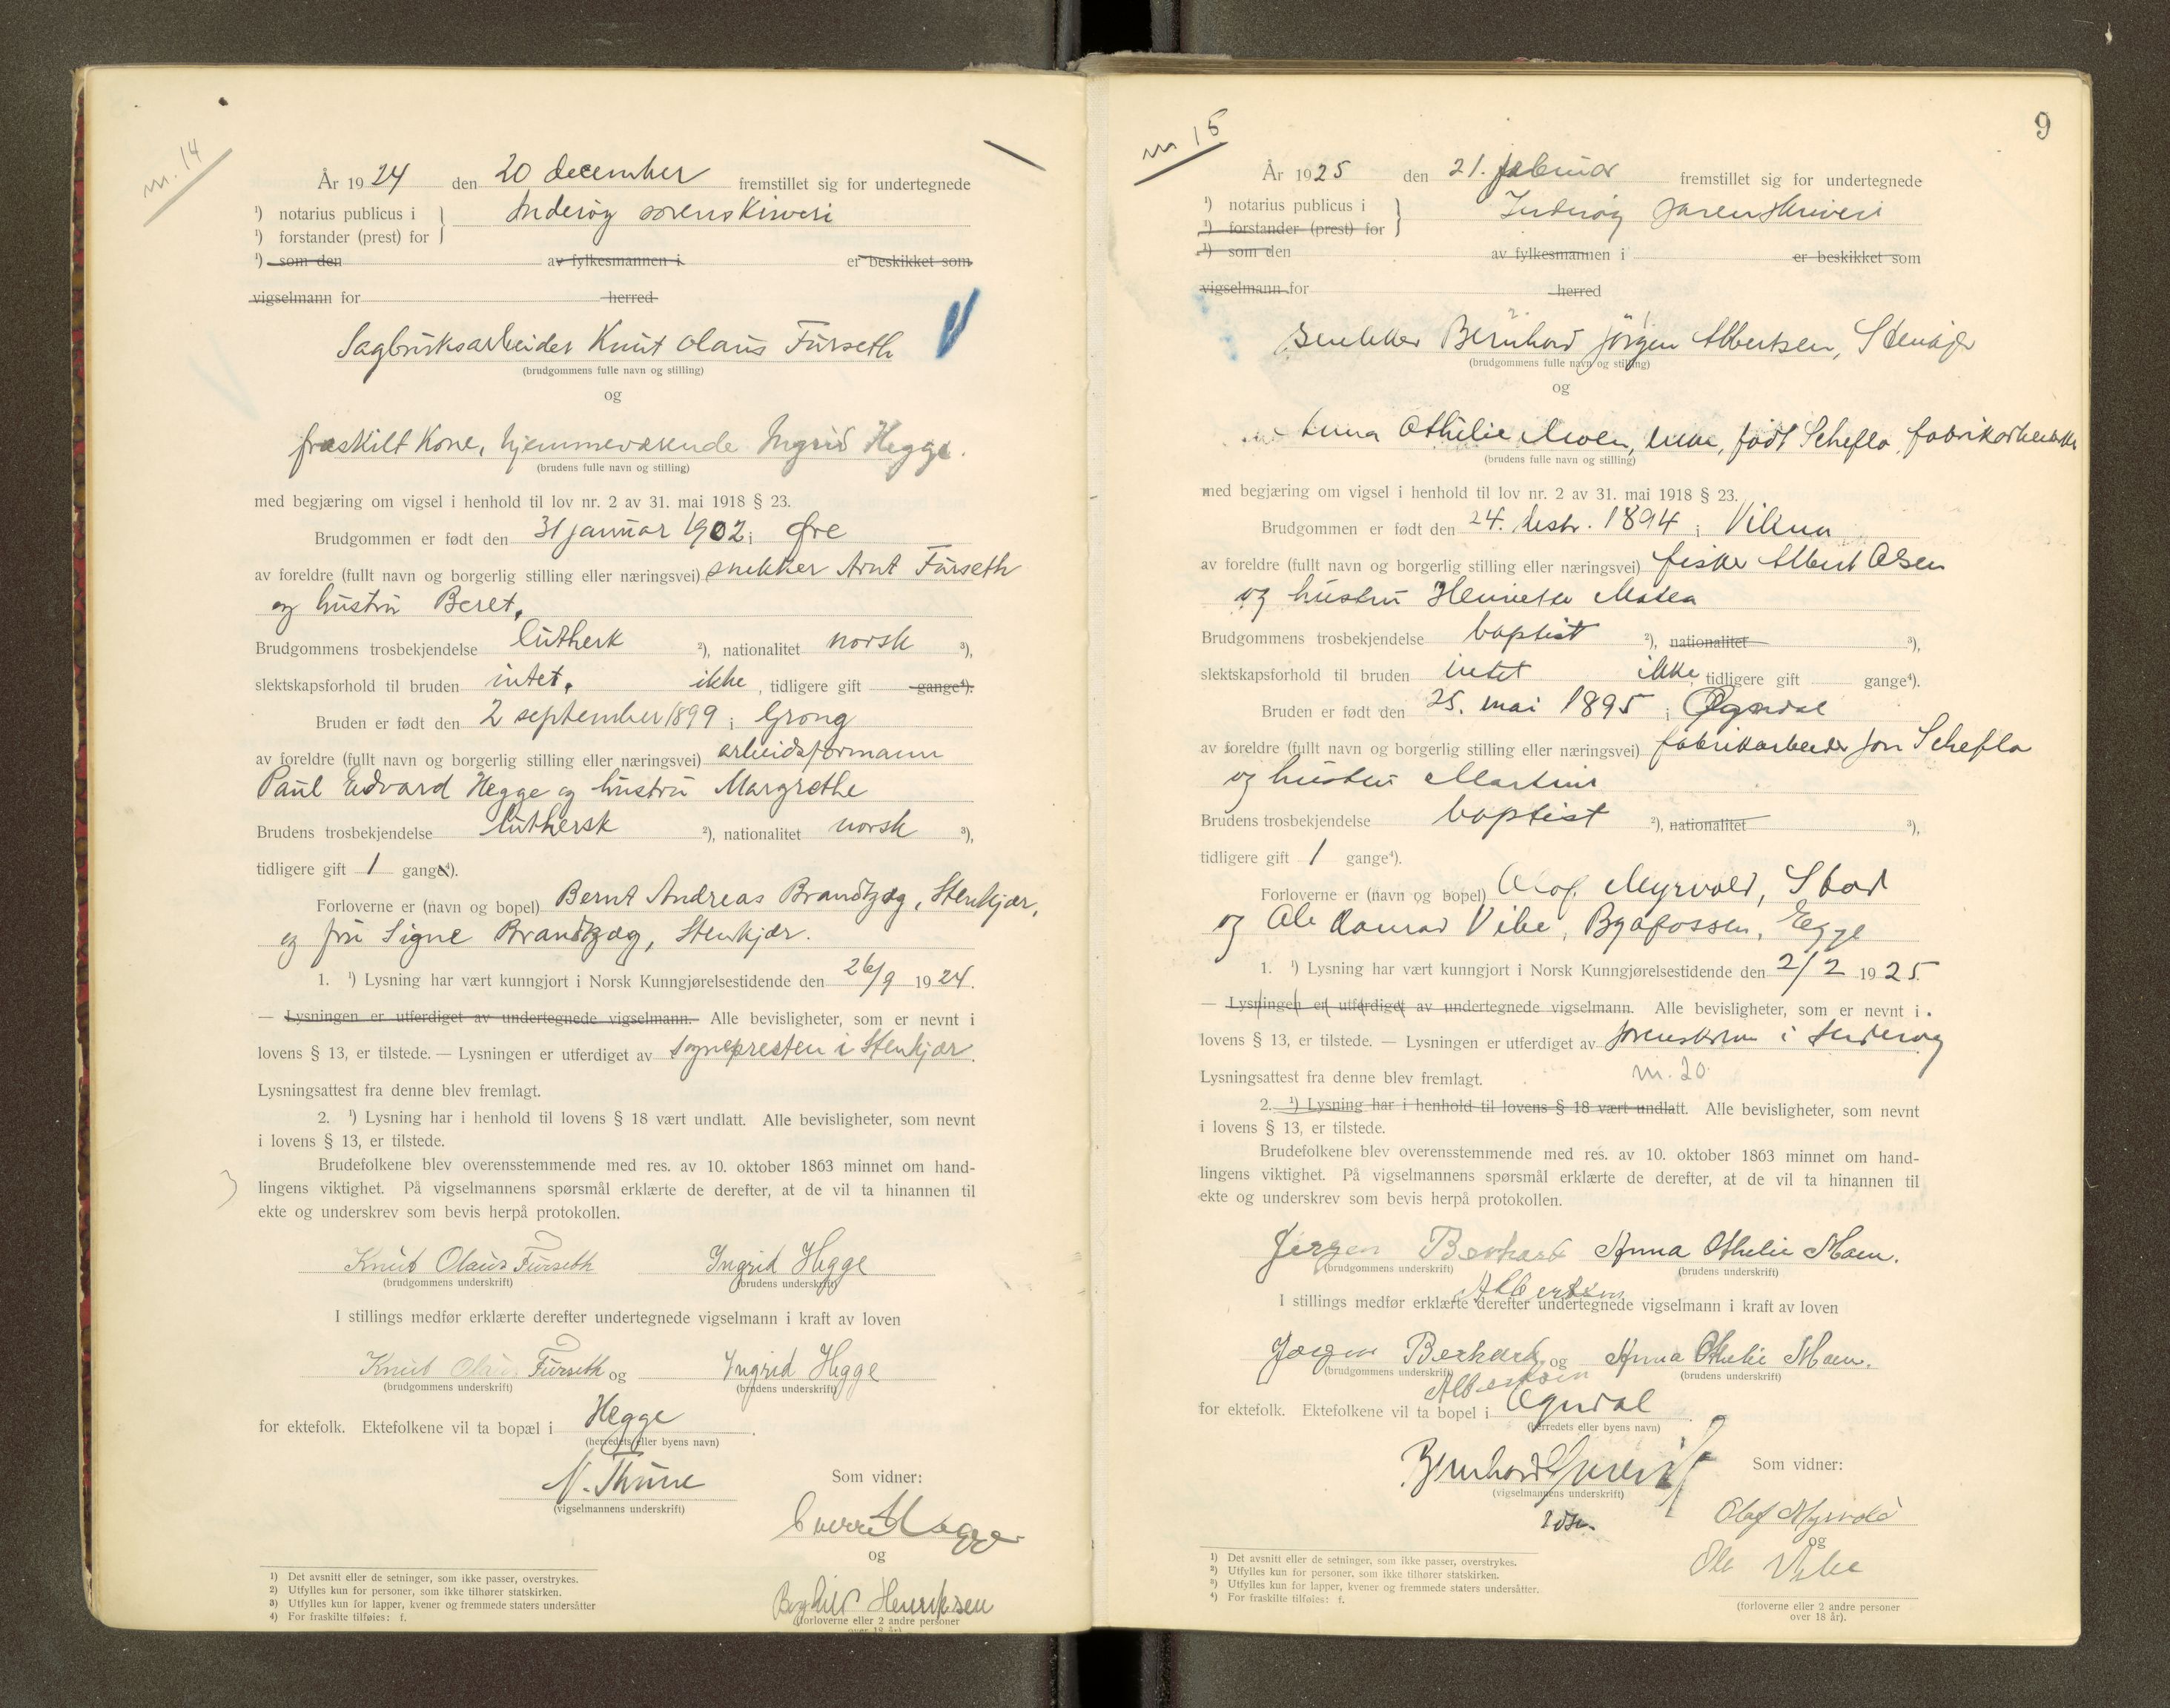 nr. 14
År 1924 den 20 december fremstillet sig for undertegnede
¹) notarius publicus i } Inderøy sorenskriveri
¹) forstander (prest) for
¹) som den av fylkesmannen i er beskikket som
vigselmann for herred
Sagbruksarbeider Knut Olaus Furseth
(brudgommens fulle navn og stilling)
og
fraskilt kone, hjemmeværende Ingrid Hegge.
(brudens fulle navn og stilling)
med begjæring om vigsel i henhold til lov nr. 2 av 31. mai 1918 § 23.
Brudgommen er født den 31 januar 1902 i Øre
av foreldre (fullt navn og borgerlig stilling eller næringsvei) snekker Arnt Furseth
og hustru Beret.
Brudgommens trosbekjendelse luthersk ²), nationalitet norsk ³),
slektskapsforhold til bruden intet. ikke, tidligere gift gange⁴).
Bruden er født den 2 september 1899 i Grong
av foreldre (fullt navn og borgerlig stilling eller næringsvei) arbeidsformann
Paul Edvard Hegge og hustru Margrethe
Brudens trosbekjendelse luthersk ²), nationalitet norsk ³),
tidligere gift 1 gange⁴).
Forloverne er (navn og bopel) Bernt Andreas Brandtzæg, Stenkjær,
og fru Signe Brandtzæg, Stenkjær.
1. ¹) Lysning har vært kunngjort i Norsk Kunngjørelsestidende den 26/9 1924.
— Lysningen er utferdiget av undertegnede vigselmann. Alle bevisligheter, som er nevnt i
lovens § 13, er tilstede. — Lysningen er utferdiget av sognepresten i Stenkjær.
Lysningsattest fra denne blev fremlagt.
2. ¹) Lysning har i henhold til lovens § 18 vært undlatt. Alle bevisligheter, som nevnt
i lovens § 13, er tilstede.
Brudefolkene blev overensstemmende med res. av 10. oktober 1863 minnet om hand-
lingens viktighet. På vigselmannens spørsmål erklærte de derefter, at de vil ta hinannen til
ekte og underskrev som bevis herpå protokollen.
Knut Olaus Furseth Ingrid Hegge
(brudgommens underskrift) (brudens underskrift)
I stillings medfør erklærte derefter undertegnede vigselmann i kraft av loven
Knut Olaus Furseth og Ingrid Hegge
(brudgommens underskrift) (brudens underskrift)
for ektefolk. Ektefolkene vil ta bopæl i Hegge.
(herredets eller byens navn)
N. Thune
(vigselmannens underskrift)
Som vidner:
Sverre Hegge
og
Borghild Henriksen
(forloverne eller 2 andre personer
over 18 år).
1) Det avsnitt eller de setninger, som ikke passer, overstrykes.
2) Utfylles kun for personer, som ikke tilhører statskirken.
3) Utfylles kun for lapper, kvener og fremmede staters undersåtter
4) For fraskilte tilføies: f.
9
nr 15
År 1925 den 21. februar fremstillet sig for undertegnede
¹) notarius publicus i } Inderøy sorenskriveri
¹) forstander (prest) for
¹) som den av fylkesmannen i er beskikket som
vigselmann for herred
snekker Bernhard Jörgen Albertsen, Stenkjer
(brudgommens fulle navn og stilling)
og
Anna Othelie Moen, enke, født Scheflo, fabrikarbeider
(brudens fulle navn og stilling)
med begjæring om vigsel i henhold til lov nr. 2 av 31. mai 1918 § 23.
Brudgommen er født den 24. 1894 i Vikna
av foreldre (fullt navn og borgerlig stilling eller næringsvei) fisker Albert Olsen
og hustru Henriette Matea
Brudgommens trosbekjendelse baptist ²), nationalitet ³),
slektskapsforhold til bruden intet ikke, tidligere gift gange⁴).
Bruden er født den 25. mai 1895 i Ogndal
av foreldre (fullt navn og borgerlig stilling eller næringsvei) fabrikarbeider Jon Scheflo
og hustru Martine
Brudens trosbekjendelse baptist ²), nationalitet ³),
tidligere gift 1 gange⁴).
Forloverne er (navn og bopel) Olof Myrvold, Stod
og Ole Konrad Vibe, Byafossen, Egge
1. ¹) Lysning har vært kunngjort i Norsk Kunngjørelsestidende den 2/2 1925.
— Lysningen er utferdiget av undertegnede vigselmann. Alle bevisligheter, som er nevnt i
lovens § 13, er tilstede. — Lysningen er utferdiget av sorenskriveren i Inderøy
Lysningsattest fra denne blev fremlagt. nr. 20.
2. ¹) Lysning har i henhold til lovens § 18 vært undlatt. Alle bevisligheter, som nevnt
i lovens § 13, er tilstede.
Brudefolkene blev overensstemmende med res. av 10. oktober 1863 minnet om hand-
lingens viktighet. På vigselmannens spørsmål erklærte de derefter, at de vil ta hinannen til
ekte og underskrev som bevis herpå protokollen.
Jørgen Berhard Anna Othelie Moen.
(brudgommens underskrift) (brudens underskrift)
Albertsen
I stillings medfør erklærte derefter undertegnede vigselmann i kraft av loven
Jørgen Berhard og Anna Othelie Moen.
(brudgommens underskrift) (brudens underskrift)
Albertsen
for ektefolk. Ektefolkene vil ta bopel i Ogndal.
(herredets eller byens navn)
Bernhard
(vigselmannens underskrift)
Som vidner:
Olaf Myrvold
og
Ole Vibe
(forloverne eller 2 andre personer
over 18 år).
1) Det avsnitt eller de setninger, som ikke passer, overstrykes.
2) Utfylles kun for personer, som ikke tilhører statskirken.
3) Utfylles kun for lapper, kvener og fremmede staters undersåtter.
4) For fraskilte tilføies: f.